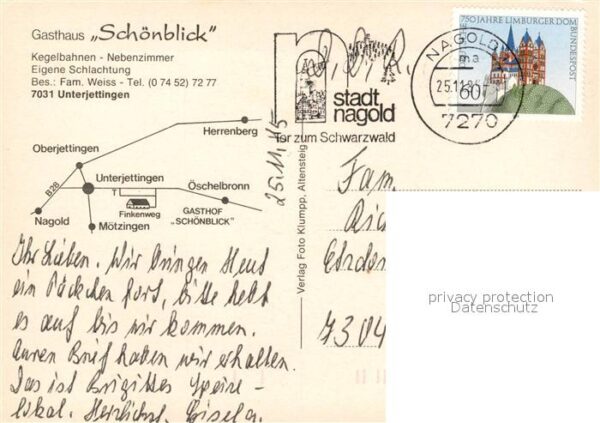 Gasthaus „Schönblick"
Kegelbahnen - Nebenzimmer
Eigene Schlachtung
Bes.: Fam. Weiss - Tel. (0 74 52) 72 77
7031 Unterjettingen
Herrenberg
Oberjettingen
B 28
Unterjettingen
T
Finkenweg
Öschelbronn
GASTHOF
"SCHÖNBLICK"
Nagold
Mötzingen
Ihr Lieben. Wir bringen Heut
ein Päckchen fort, bitte hebt
es auf bis wir kommen.
Euren Brief haben wir erhalten.
Das ist Brigittes Speise-
lokal. Herzlichst, Gisela.
Verlag Foto Klumpp, Altensteig
n
stadt
nagold
Tor zum Schwarzwald
NAGOLD
25.11.85
7270
750 JAHRE LIMBURGER DOM
DEUTSCHE BUNDESPOST
60
Fam.
7304
privacy protection
Datenschutz